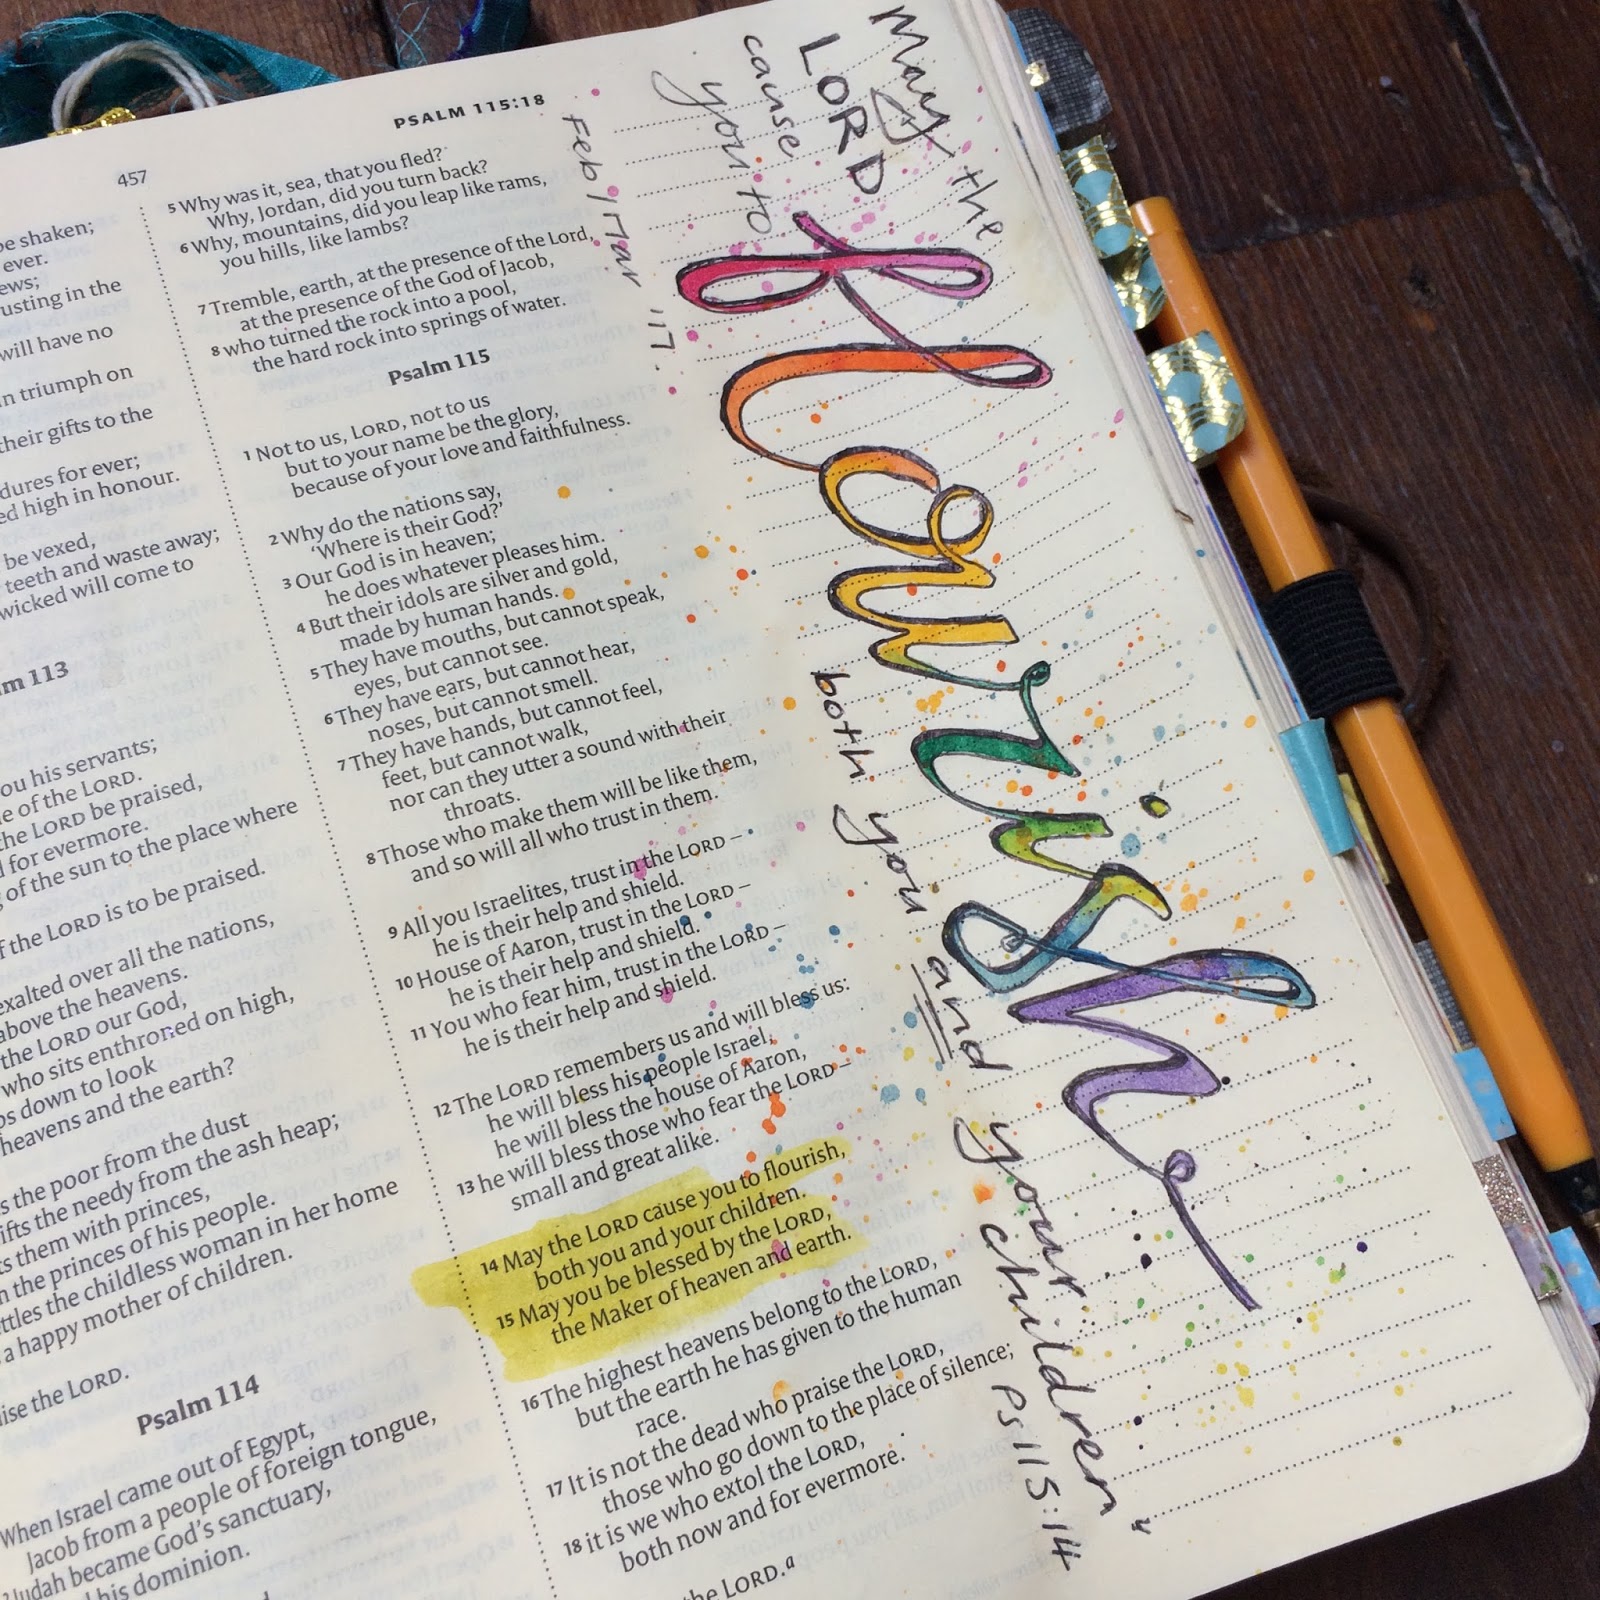 457
PSALM 115:18
be shaken;
ever.
ews;
usting in the
will have no
n triumph on
their gifts to the
dures for ever;
ed high in honour.
be vexed,
teeth and waste away;
wicked will come to
lm 113
ou his servants;
e of the LORD.
the LORD be praised,
d for evermore.
g of the sun to the place where
f the LORD is to be praised.
exalted over all the nations,
above the heavens.
the LORD our God,
who sits enthroned on high,
ps down to look
heavens and the earth?
s the poor from the dust
ifts the needy from the ash heap;
ts them with princes,
n the princes of his people.
ttles the childless woman in her home
a happy mother of children.
ise the LORD.
Psalm 114
When Israel came out of Egypt,
Jacob from a people of foreign tongue,
2 Judah became God's sanctuary,
his dominion.
5 Why was it, sea, that you fled?
Why, Jordan, did you turn back?
6 Why, mountains, did you leap like rams,
you hills, like lambs?
7 Tremble, earth, at the presence of the Lord,
at the presence of the God of Jacob,
8 who turned the rock into a pool,
the hard rock into springs of water.
Psalm 115
1 Not to us, LORD, not to us
but to your name be the glory,
because of your love and faithfulness.
2 Why do the nations say,
‘Where is their God?’
3 Our God is in heaven;
he does whatever pleases him.
4 But their idols are silver and gold,
made by human hands.
5 They have mouths, but cannot speak,
eyes, but cannot see.
6 They have ears, but cannot hear,
noses, but cannot smell.
7 They have hands, but cannot feel,
feet, but cannot walk,
nor can they utter a sound with their
throats.
8 Those who make them will be like them,
and so will all who trust in them.
9 All you Israelites, trust in the LORD –
he is their help and shield.
10 House of Aaron, trust in the LORD –
he is their help and shield.
11 You who fear him, trust in the LORD –
he is their help and shield.
12 The LORD remembers us and will bless us:
he will bless his people Israel,
he will bless the house of Aaron,
13 he will bless those who fear the LORD –
small and great alike.
14 May the LORD cause you to flourish,
both you and your children.
15 May you be blessed by the LORD,
the Maker of heaven and earth.
16 The highest heavens belong to the LORD,
but the earth he has given to the human
race.
17 It is not the dead who praise the LORD,
those who go down to the place of silence;
18 it is we who extol the LORD,
both now and for evermore.
the LORD.a
May the
LORD
cause
you to
flourish
both you and your children"
Ps 115:14
Feb/Mar '17.